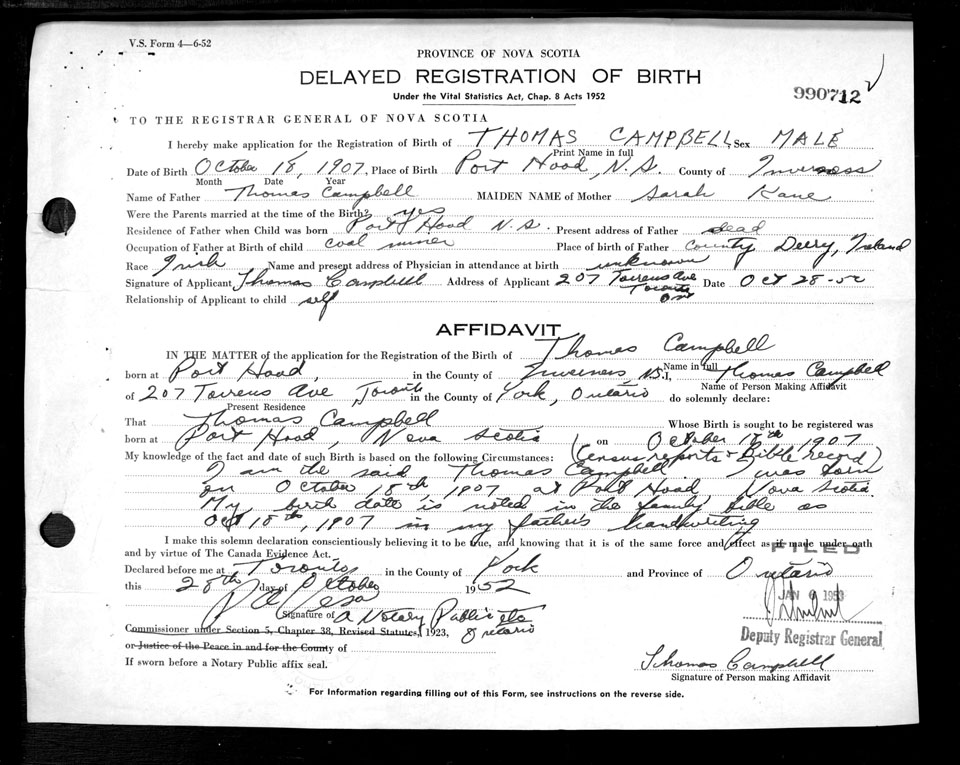 V.S. Form 4—6-52
PROVINCE OF NOVA SCOTIA
DELAYED REGISTRATION OF BIRTH
Under the Vital Statistics Act, Chap. 8 Acts 1952
990712
TO THE REGISTRAR GENERAL OF NOVA SCOTIA
I hereby make application for the Registration of Birth of THOMAS CAMPBELL, Sex MALE
Print Name in full
Date of Birth October 18, 1907, Place of Birth Port Hood, N.S. County of Inverness
Month Date Year
Name of Father Thomas Campbell MAIDEN NAME of Mother Sarah Kane
Were the Parents married at the time of the Birth? yes
Residence of Father when Child was born Port Hood N.S. Present address of Father dead
Occupation of Father at Birth of child coal miner Place of birth of Father County Derry, Ireland
Race Irish Name and present address of Physician in attendance at birth unknown
Signature of Applicant Thomas Campbell Address of Applicant 207 Torrens Ave Toronto Ont Date Oct 28-52
Relationship of Applicant to child self
AFFIDAVIT
IN THE MATTER of the application for the Registration of the Birth of Thomas Campbell
Name in full
born at Port Hood, in the County of Inverness, N.S. I, Thomas Campbell
Name of Person Making Affidavit
of 207 Torrens Ave, Toronto in the County of York, Ontario do solemnly declare:
Present Residence
That Thomas Campbell Whose Birth is sought to be registered was
born at Port Hood, Nova Scotia on October 18th 1907
My knowledge of the fact and date of such Birth is based on the following Circumstances: (Census reports + Bible record)
I am the said Thomas Campbell I was born
on October 18th 1907 at Port Hood Nova Scotia.
My birth date is noted in the family Bible as
Oct 18th, 1907 in my father's handwriting
I make this solemn declaration conscientiously believing it to be true, and knowing that it is of the same force and effect as if made under oath
and by virtue of The Canada Evidence Act.
FILED
Declared before me at Toronto in the County of York and Province of Ontario
this 28th day of October 1952
JAN 6 1953
Signature of a Notary Public etc
Ontario
Commissioner under Section 5, Chapter 38, Revised Statutes, 1923,
or Justice of the Peace in and for the County of
Deputy Registrar General
If sworn before a Notary Public affix seal.
Thomas Campbell
Signature of Person making Affidavit
For Information regarding filling out of this Form, see instructions on the reverse side.